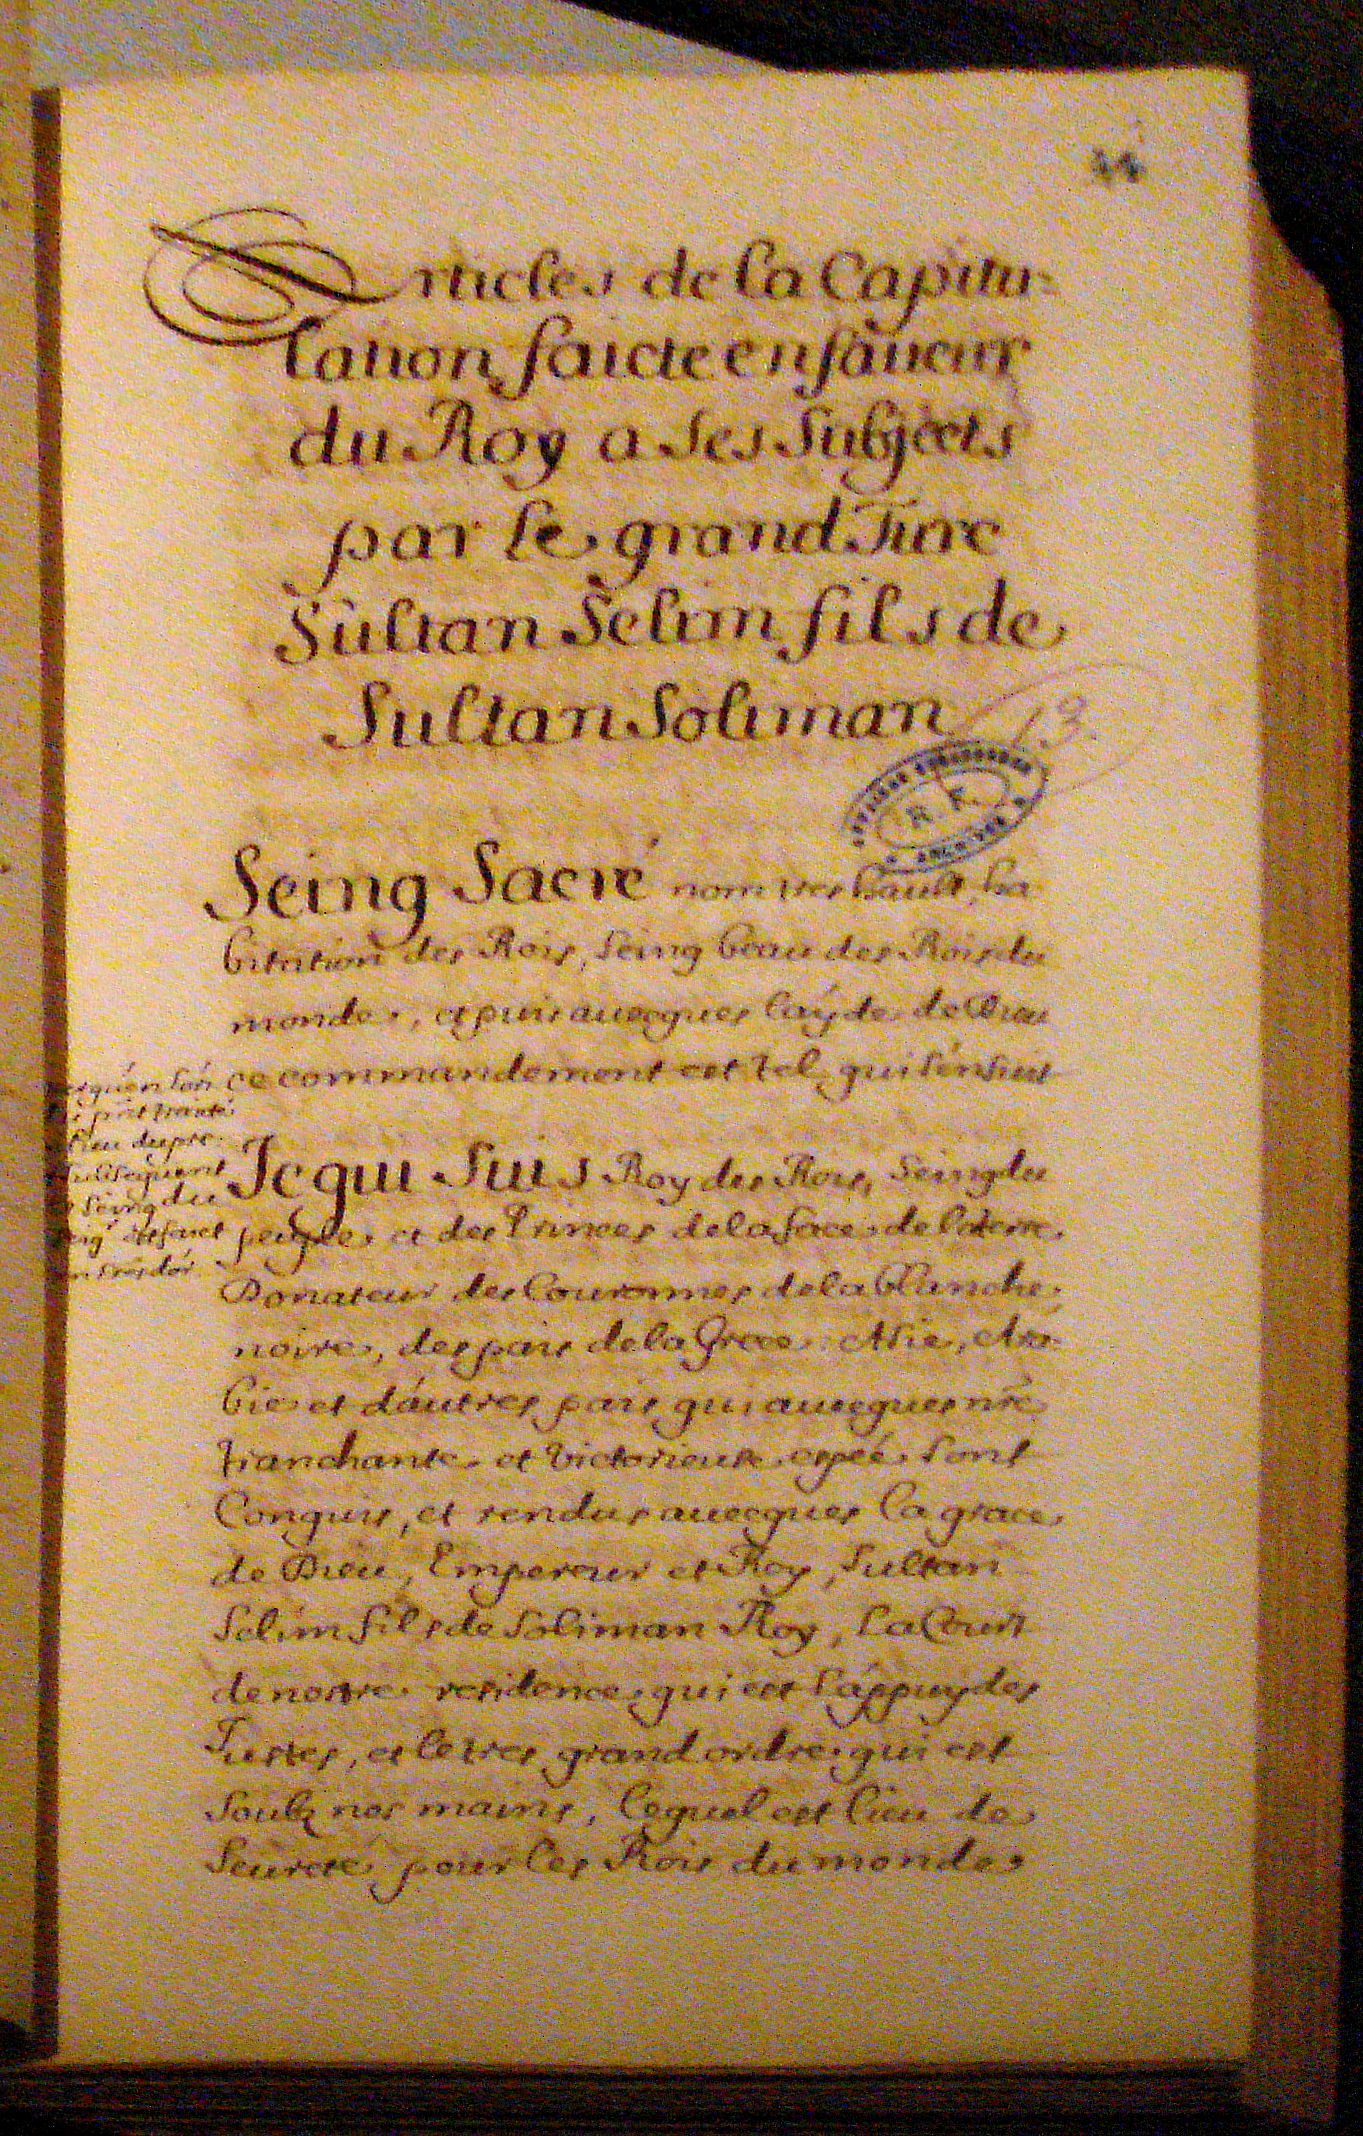 44
Articles de la Capitu-
lation faicte en faueur
du Roy a ses Subjects
par le grand Turc
Sultan Selim fils de
Sultan Soliman
13
R. F.
Seing Sacré nom tres hault, ha
bitation des Rois, Seing beau des Rois du
monde, et puis auecques l'ayde de Dieu
ce commandement est tel qui s'ensuit
lieu du
Seing du
Je qui Suis Roy des Rois, Seing du
peuple et des Princes de la face de la terre,
Donateur des Couronnes de la blanche,
noire, des pais de la Grece Asie, Ara-
bie et d'autres pais qui auecques nre
tranchante et victorieuse espée sont
Conquis, et rendus auecques la grace
de Dieu, Empereur et Roy, Sultan
Selim fils de Soliman Roy, La Court
de nostre residence, qui est l'appuy des
Justes, et le tres grand ordre qui est
Soubz nos mains, lequel est lieu de
Seureté pour les Rois du monde